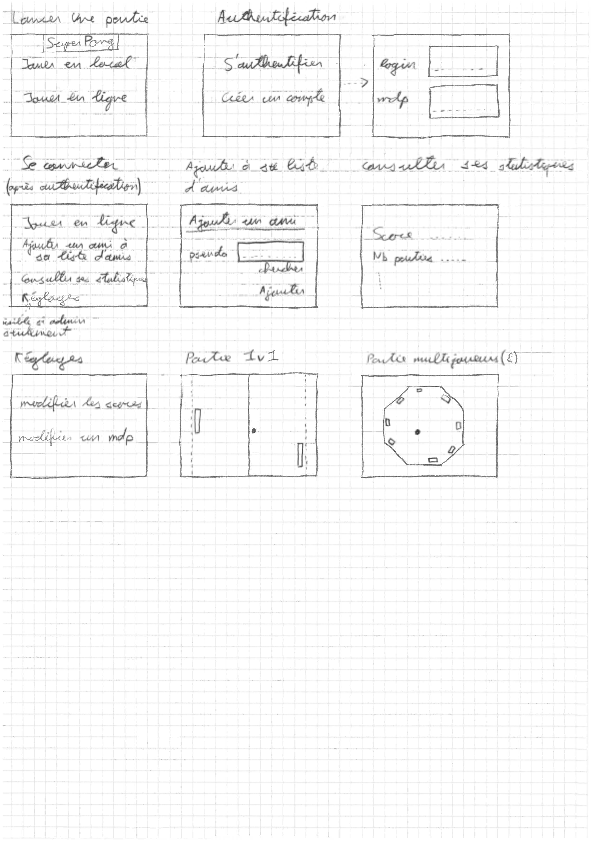 Lancer une partie
SuperPong
Jouer en local
Jouer en ligne
Authentification
S'authentifier
Créer un compte
login
mdp
Se connecter
(après authentification)
Jouer en ligne
Ajouter un ami à
sa liste d'amis
Consulter ses statistiques
Réglages
visible si admin
seulement
Ajouter à sa liste
d'amis
Ajouter un ami
pseudo
chercher
Ajouter
Consulter ses statistiques
Score ........
Nb parties .....
Réglages
modifier les scores
modifier un mdp
Partie 1v1
Partie multijoueurs (8)